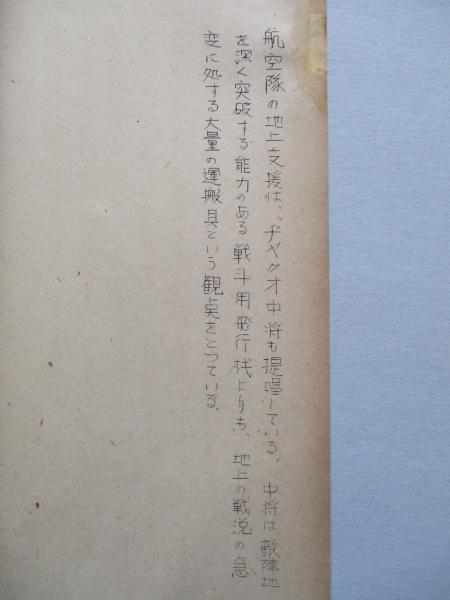 航空隊の地上支援は、ヂヤクオ中将も提唱している。中将は敵陣地
を深く突破する能力のある戦斗用飛行机よりも、地上の戦況の急
変に処する大量の運搬具という観点をとつている。